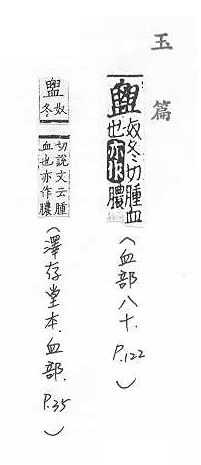 玉篇
奴冬切腫血
也亦作膿
(血部八十. P.122)
奴
冬
切說文云腫
血也亦作膿
(澤存堂本.血部. P.35)